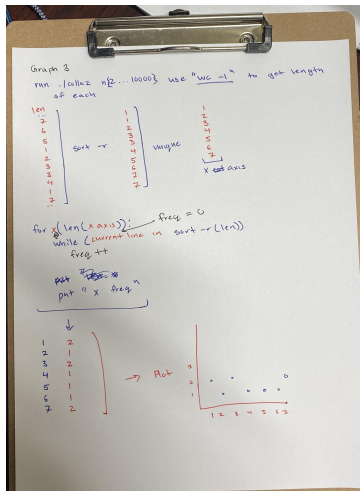 Graph 3
run ./collaz n{2...10000} use "wc -l" to get length
of each
len
7
6
5
1
2
3
3
4
1
7
sort -r
1
1
2
3
3
4
5
6
7
7
unique
1
2
3
4
5
6
7
x axis
for x(len(x axis)): freq = 0
while (current line in sort -r (len))
freq ++
put " x freq "
1 2
2 1
3 2
4 1
5 1
6 1
7 2
→ Plot
3
2
1
1 2 3 4 5 6 7